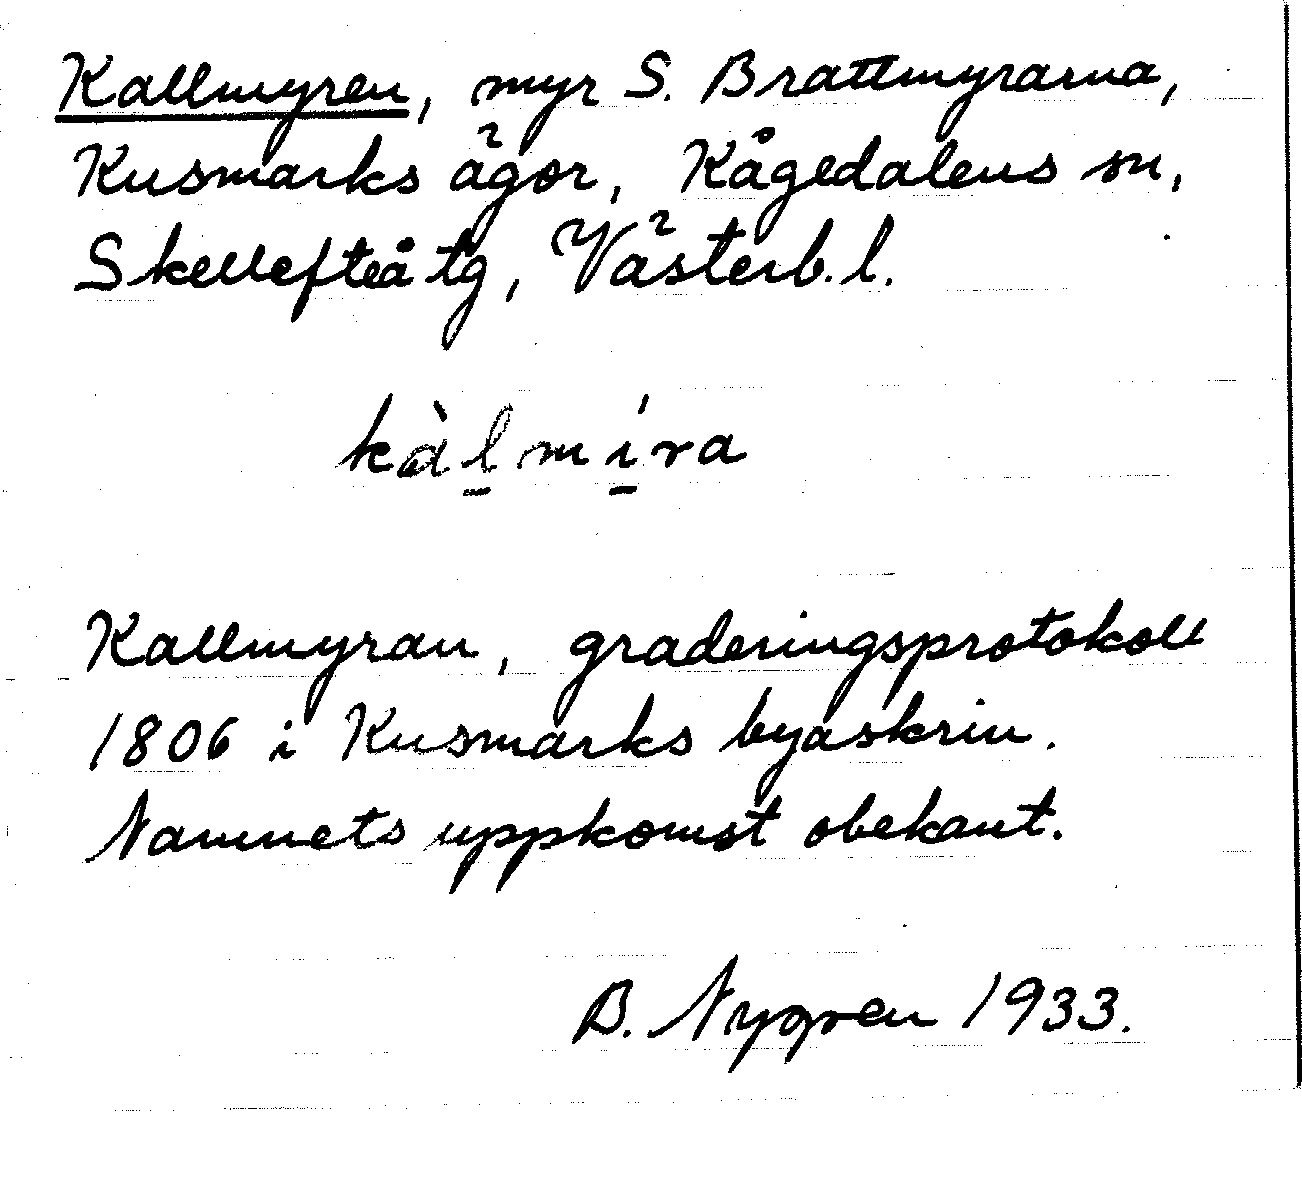 Kallmyren, myr S. Brattmyrarna,
Kusmarks ägor, Kågedalens sn,
Skellefteå tg, Västerb. l.
kàl̠mí̠ra
Kallmyran, graderingsprotokoll
1806 i Kusmarks byaskrin.
Namnets uppkomst obekant.
B. Nygren 1933.